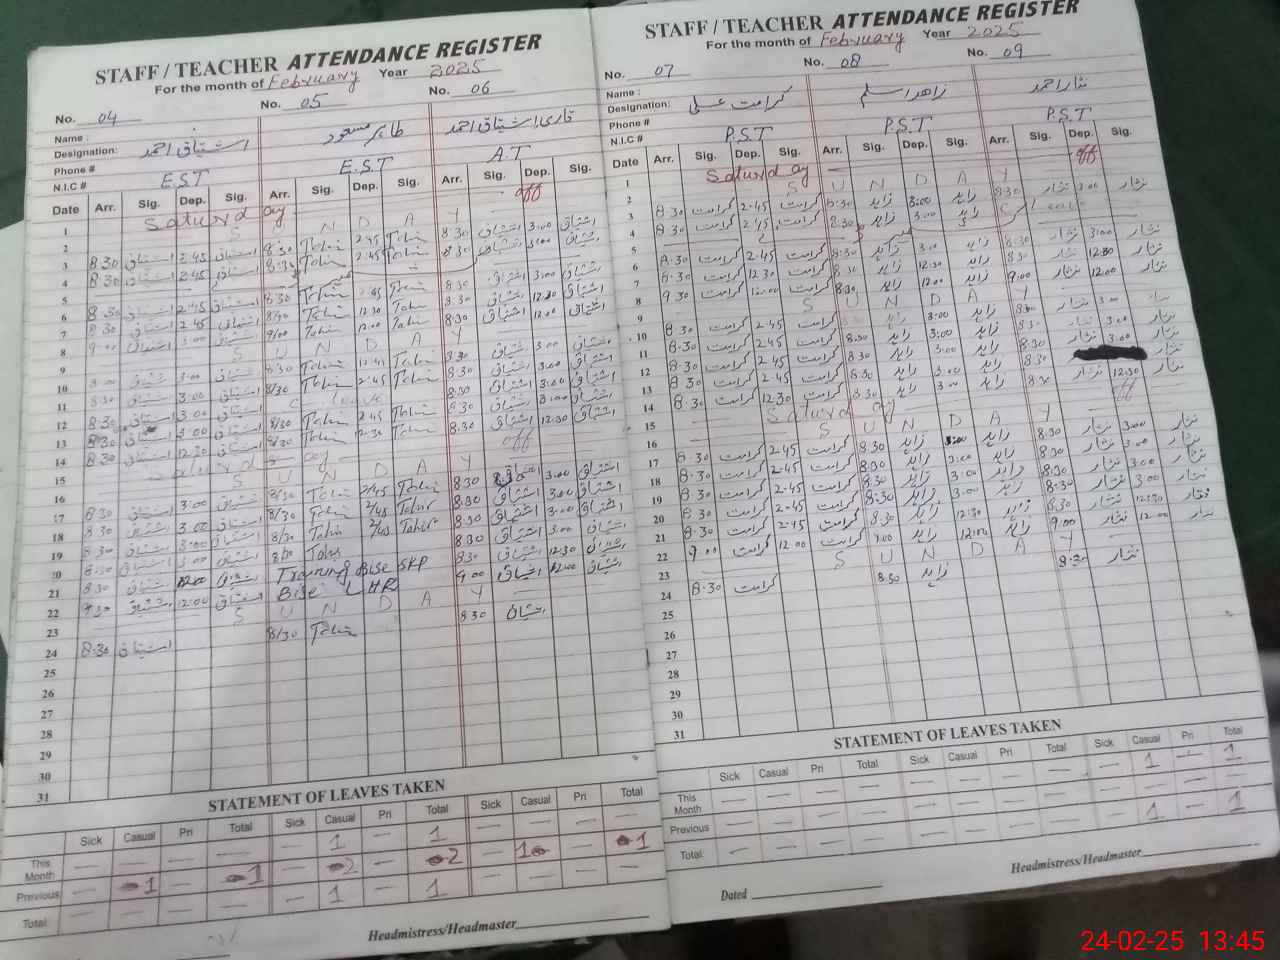 STAFF / TEACHER ATTENDANCE REGISTER
For the month of February Year 2025
No. 04 No. 05 No. 06
Name : اشتیاق احمد طاہر مسعود قاری اشتیاق احمد
Designation: E.S.T E.S.T A.T
Phone #
N.I.C #
Date Arr. Sig. Dep. Sig. Arr. Sig. Dep. Sig. Arr. Sig. Dep. Sig.
1 Saturday off
2 S U N D A Y
3 8:30 اشتیاق 2:45 اشتیاق 8:30 Tahir 2:45 Tahir 8:30 اشتیاق 3:00 اشتیاق
4 8:30 اشتیاق 2:45 اشتیاق 8:30 Tahir 2:45 Tahir 8:30 اشتیاق 3:00 اشتیاق
5
6 8:30 اشتیاق 2:45 اشتیاق 8:30 Tahir 2:45 Tahir 8:30 اشتیاق 3:00 اشتیاق
7 8:30 اشتیاق 2:45 اشتیاق 8:30 Tahir 12:30 Tahir 8:30 اشتیاق 12:30 اشتیاق
8 9:00 اشتیاق 9:00 Tahir 12:00 Tahir 8:30 اشتیاق 12:00 اشتیاق
9 S U N D A Y
10 اشتیاق 3:00 اشتیاق 8/30 Tahir 12:45 Tahir 8:30 اشتیاق 3:00 اشتیاق
11 8:30 اشتیاق 3:00 اشتیاق 8/30 Tahir 2:45 Tahir 8:30 اشتیاق 3:00 اشتیاق
12 8:30 اشتیاق 3:00 اشتیاق C leave 8:30 اشتیاق 3:00 اشتیاق
13 8:30 اشتیاق 3:00 اشتیاق 8/30 Tahir 2:45 Tahir 8:30 اشتیاق 12:30 اشتیاق
14 8:30 اشتیاق 12:30 اشتیاق 8/30 Tahir 12:30 Tahir
15 Saturday off
16 S U N D A Y
17 8:30 اشتیاق 3:00 اشتیاق 8/30 Tahir 2/45 Tahir 8:30 اشتیاق 3:00 اشتیاق
18 8:30 اشتیاق 3:00 اشتیاق 8/30 Tahir 2/45 Tahir 8:30 اشتیاق 3:00 اشتیاق
19 8:30 اشتیاق 3:00 اشتیاق 8/30 Tahir 2/45 Tahir 8:30 اشتیاق 3:00 اشتیاق
20 8:30 اشتیاق 3:00 اشتیاق 8/30 Tahir 8:30 اشتیاق 3:00 اشتیاق
21 8:30 اشتیاق 12:00 اشتیاق Training Bise SKP 8:30 اشتیاق 12:30 اشتیاق
22 9:30 اشتیاق 12:00 اشتیاق Bise LHR 9:00 اشتیاق 12:00 اشتیاق
23 S U N D A Y
24 8:30 اشتیاق 8/30 Tahir 8:30 اشتیاق
25
26
27
28
29
30
31
STATEMENT OF LEAVES TAKEN
Sick Casual Pri Total Sick Casual Pri Total Sick Casual Pri Total
This Month — — — — — 1 — 1 — — — —
Previous — 1 — 1 — 2 — 2 — 1 — 1
Total: — — — — — 1 — 1 — — — —
Headmistress/Headmaster
STAFF / TEACHER ATTENDANCE REGISTER
For the month of February Year 2025
No. 07 No. 08 No. 09
Name : کرامت علی زاہد اسلم نثار احمد
Designation: P.S.T P.S.T P.S.T
Phone #
N.I.C #
Date Arr. Sig. Dep. Sig. Arr. Sig. Dep. Sig. Arr. Sig. Dep. Sig.
1 Saturday off
2 S U N D A Y
3 8:30 کرامت 2:45 کرامت 8:30 زاہد 3:00 زاہد 8:30 نثار 3:00 نثار
4 8:30 کرامت 2:45 کرامت 8:30 زاہد 3:00 زاہد C leave
5
6 8:30 کرامت 2:45 کرامت 8:30 زاہد 3:00 زاہد 8:30 نثار 3:00 نثار
7 8:30 کرامت 12:30 کرامت 8:30 زاہد 12:30 زاہد 8:30 نثار 12:30 نثار
8 9:30 کرامت 12:00 کرامت 8:30 زاہد 12:00 زاہد 9:00 نثار 12:00 نثار
9 S U N D A Y
10 8:30 کرامت 2:45 کرامت 8:30 زاہد 3:00 زاہد 8:30 نثار 3:00
11 8:30 کرامت 2:45 کرامت 8:30 زاہد 3:00 زاہد 8:30 نثار 3:00 نثار
12 8:30 کرامت 2:45 کرامت 8:30 زاہد 3:00 زاہد 8:30 نثار 3:00 نثار
13 8:30 کرامت 2:45 کرامت 8:30 زاہد 3:00 زاہد 8:30 نثار 12:30 نثار
14 8:30 کرامت 12:30 کرامت 8:30 زاہد 3:00 زاہد 8:30
15 Saturday off
16 S U N D A Y
17 8:30 کرامت 2:45 کرامت 8:30 زاہد 3:00 زاہد 8:30 نثار 3:00 نثار
18 8:30 کرامت 2:45 کرامت 8:30 زاہد 3:00 زاہد 8:30 نثار 3:00 نثار
19 8:30 کرامت 2:45 کرامت 8:30 زاہد 3:00 زاہد 8:30 نثار 3:00 نثار
20 8:30 کرامت 2:45 کرامت 8:30 زاہد 3:00 زاہد 8:30 نثار 12:30 نثار
21 8:30 کرامت 2:45 کرامت 8:30 زاہد 12:30 زاہد 9:00 نثار 12:00 نثار
22 9:00 کرامت 12:00 کرامت 9:00 زاہد 12:00 زاہد
23 S U N D A Y
24 8:30 کرامت 8:30 زاہد 8:30 نثار
25
26
27
28
29
30
31
STATEMENT OF LEAVES TAKEN
Sick Casual Pri Total Sick Casual Pri Total Sick Casual Pri Total
This Month — — — — — — — — — 1 — 1
Previous — — — — — — — — — — — —
Total: — — — — — — — — — 1 — 1
Headmistress/Headmaster
Dated
24-02-25 13:45